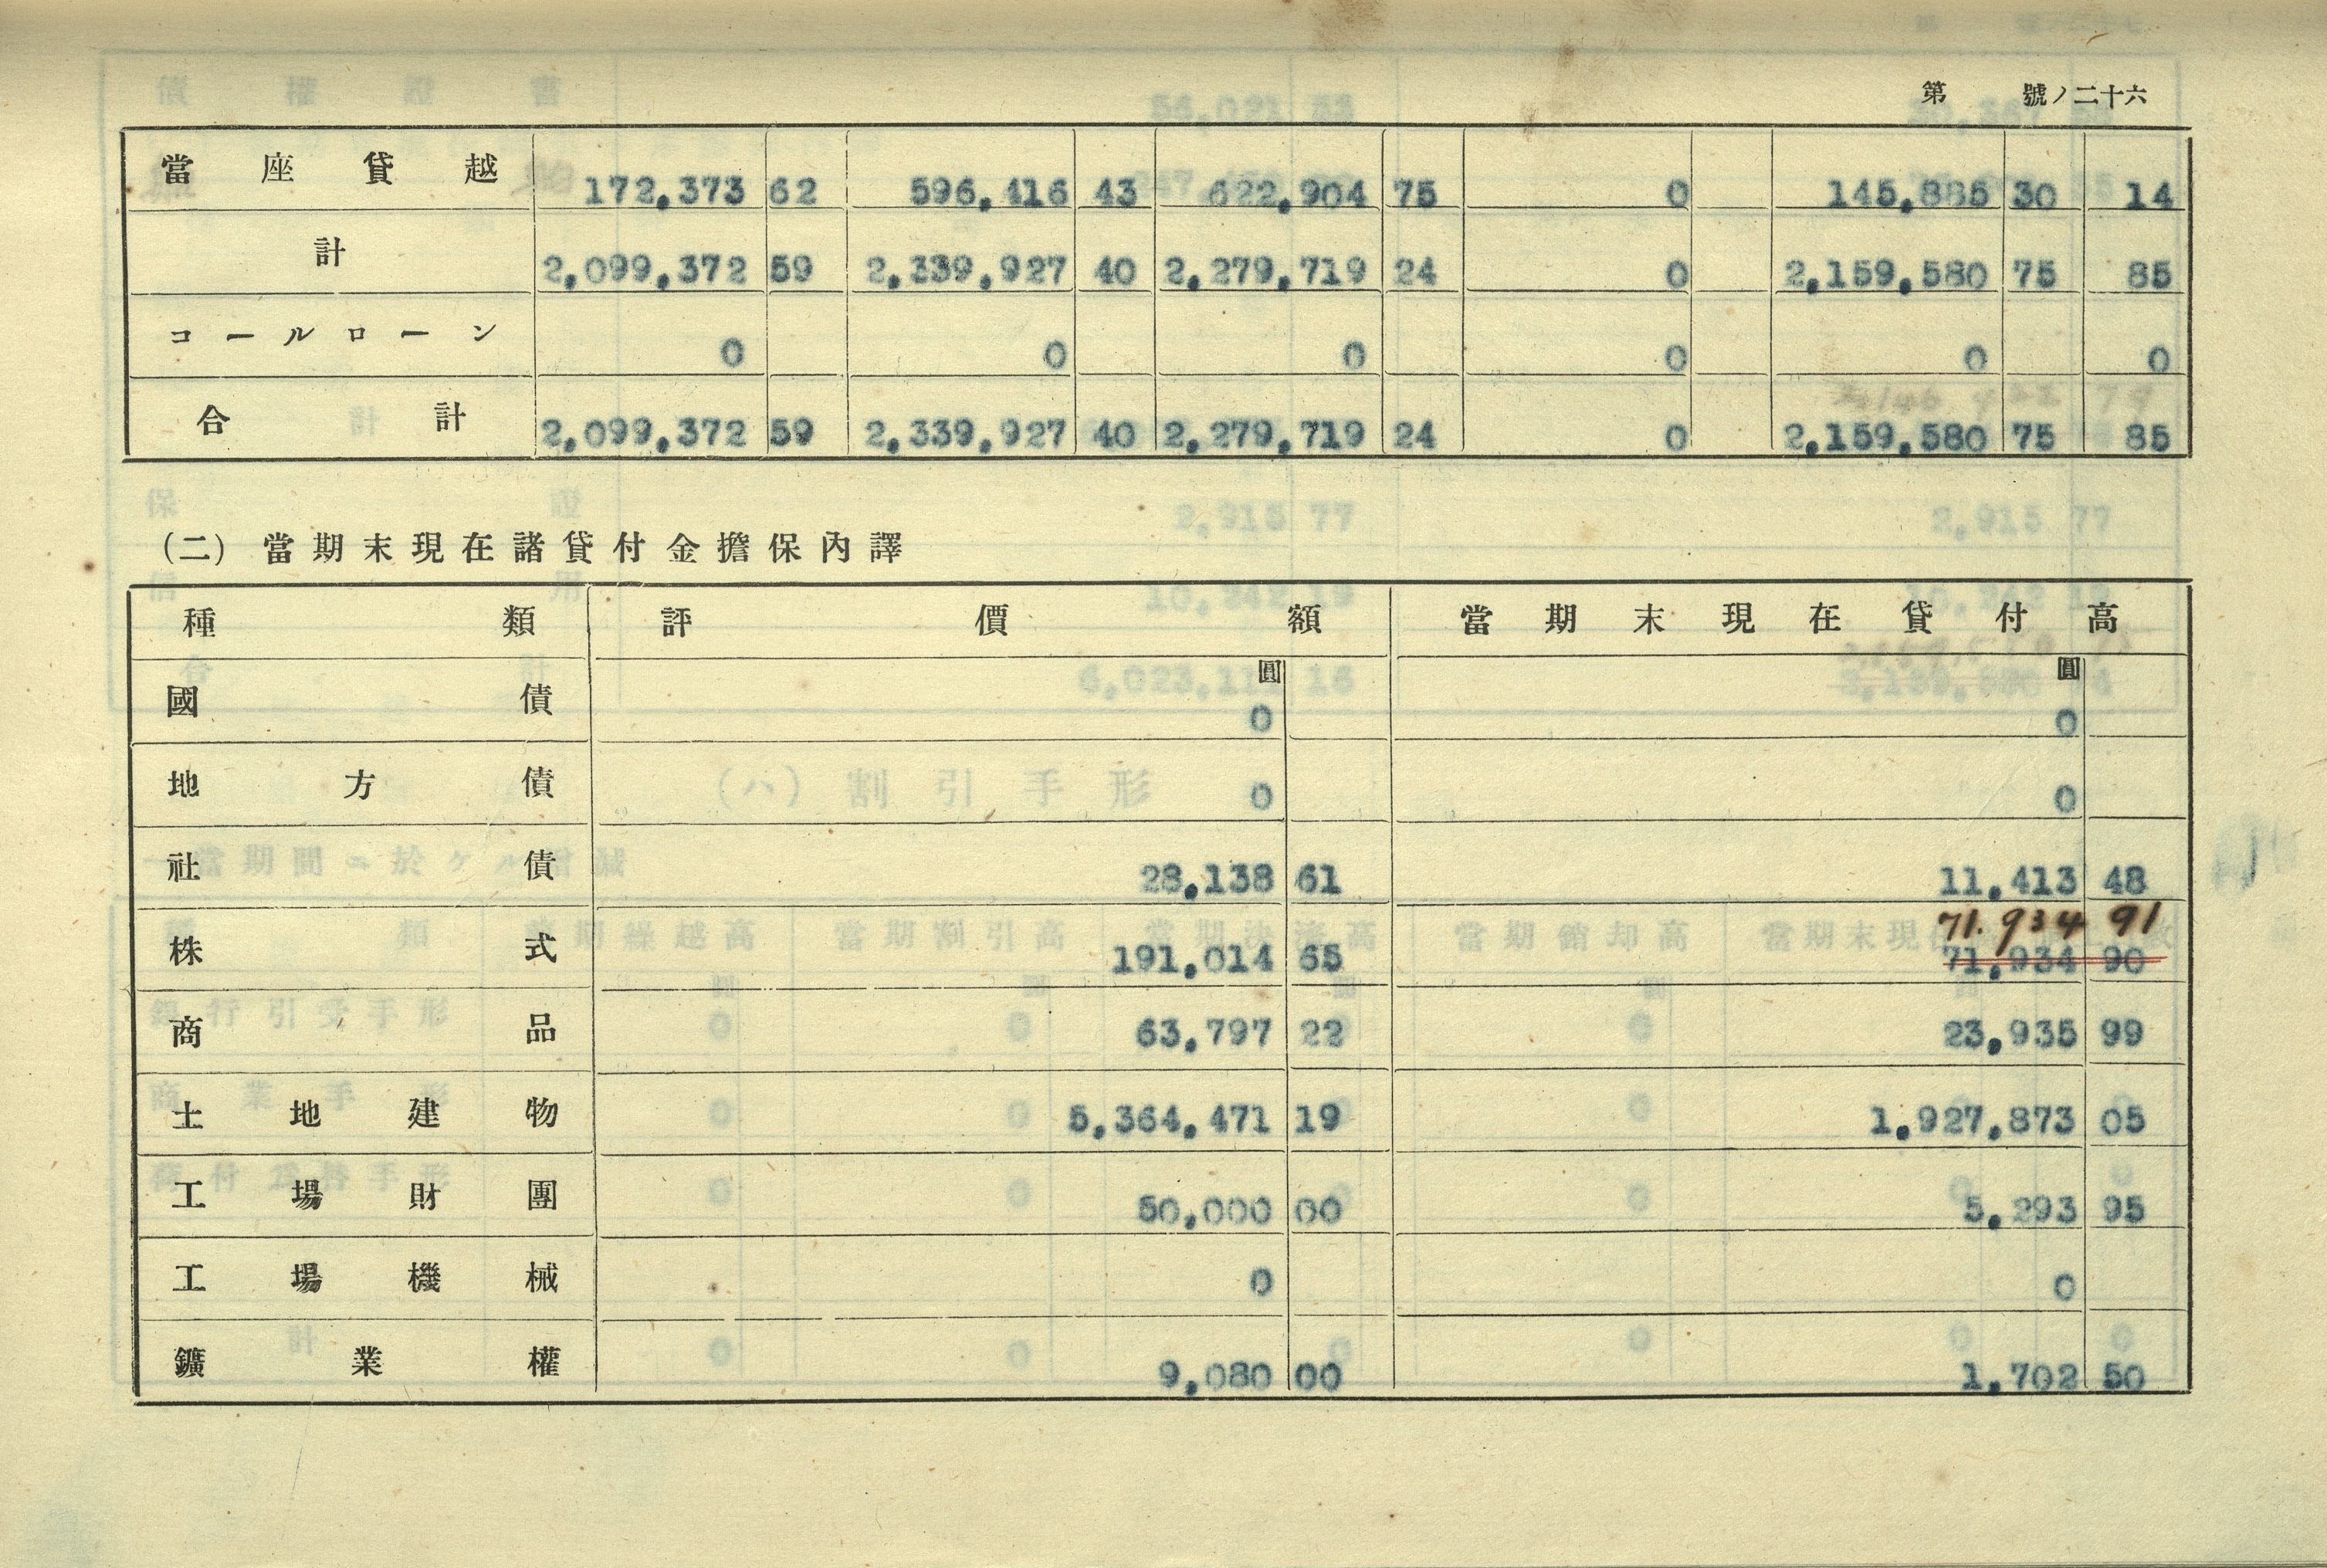 第 號ノ二十六
當座貸越 172,373 62 596,416 43 622,904 75 0 145,885 30 14
計 2,099,372 59 2,339,927 40 2,279,719 24 0 2,159,580 75 85
コールローン 0 0 0 0 0 0
合計 2,099,372 59 2,339,927 40 2,279,719 24 0 2,159,580 75 85
(二) 當期末現在諸貸付金擔保內譯
種類 評價額 當期末現在貸付高
圓 圓
國債 0 0
地方債 0 0
社債 28,138 61 11,413 48
71.934 91
株式 191,014 65 71,934 90
商品 63,797 22 23,935 99
土地建物 5,364,471 19 1,927,873 05
工場財團 50,000 00 5,293 95
工場機械 0 0
鑛業權 9,080 00 1,702 50